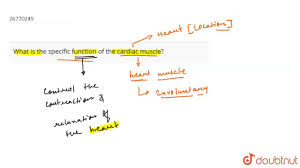 26770249
Heart [Location]
What is the specific function of the cardiac muscle?
heart muscle
↳ Involuntary
control the
contractions &
relaxation of
the heart
doubtnut